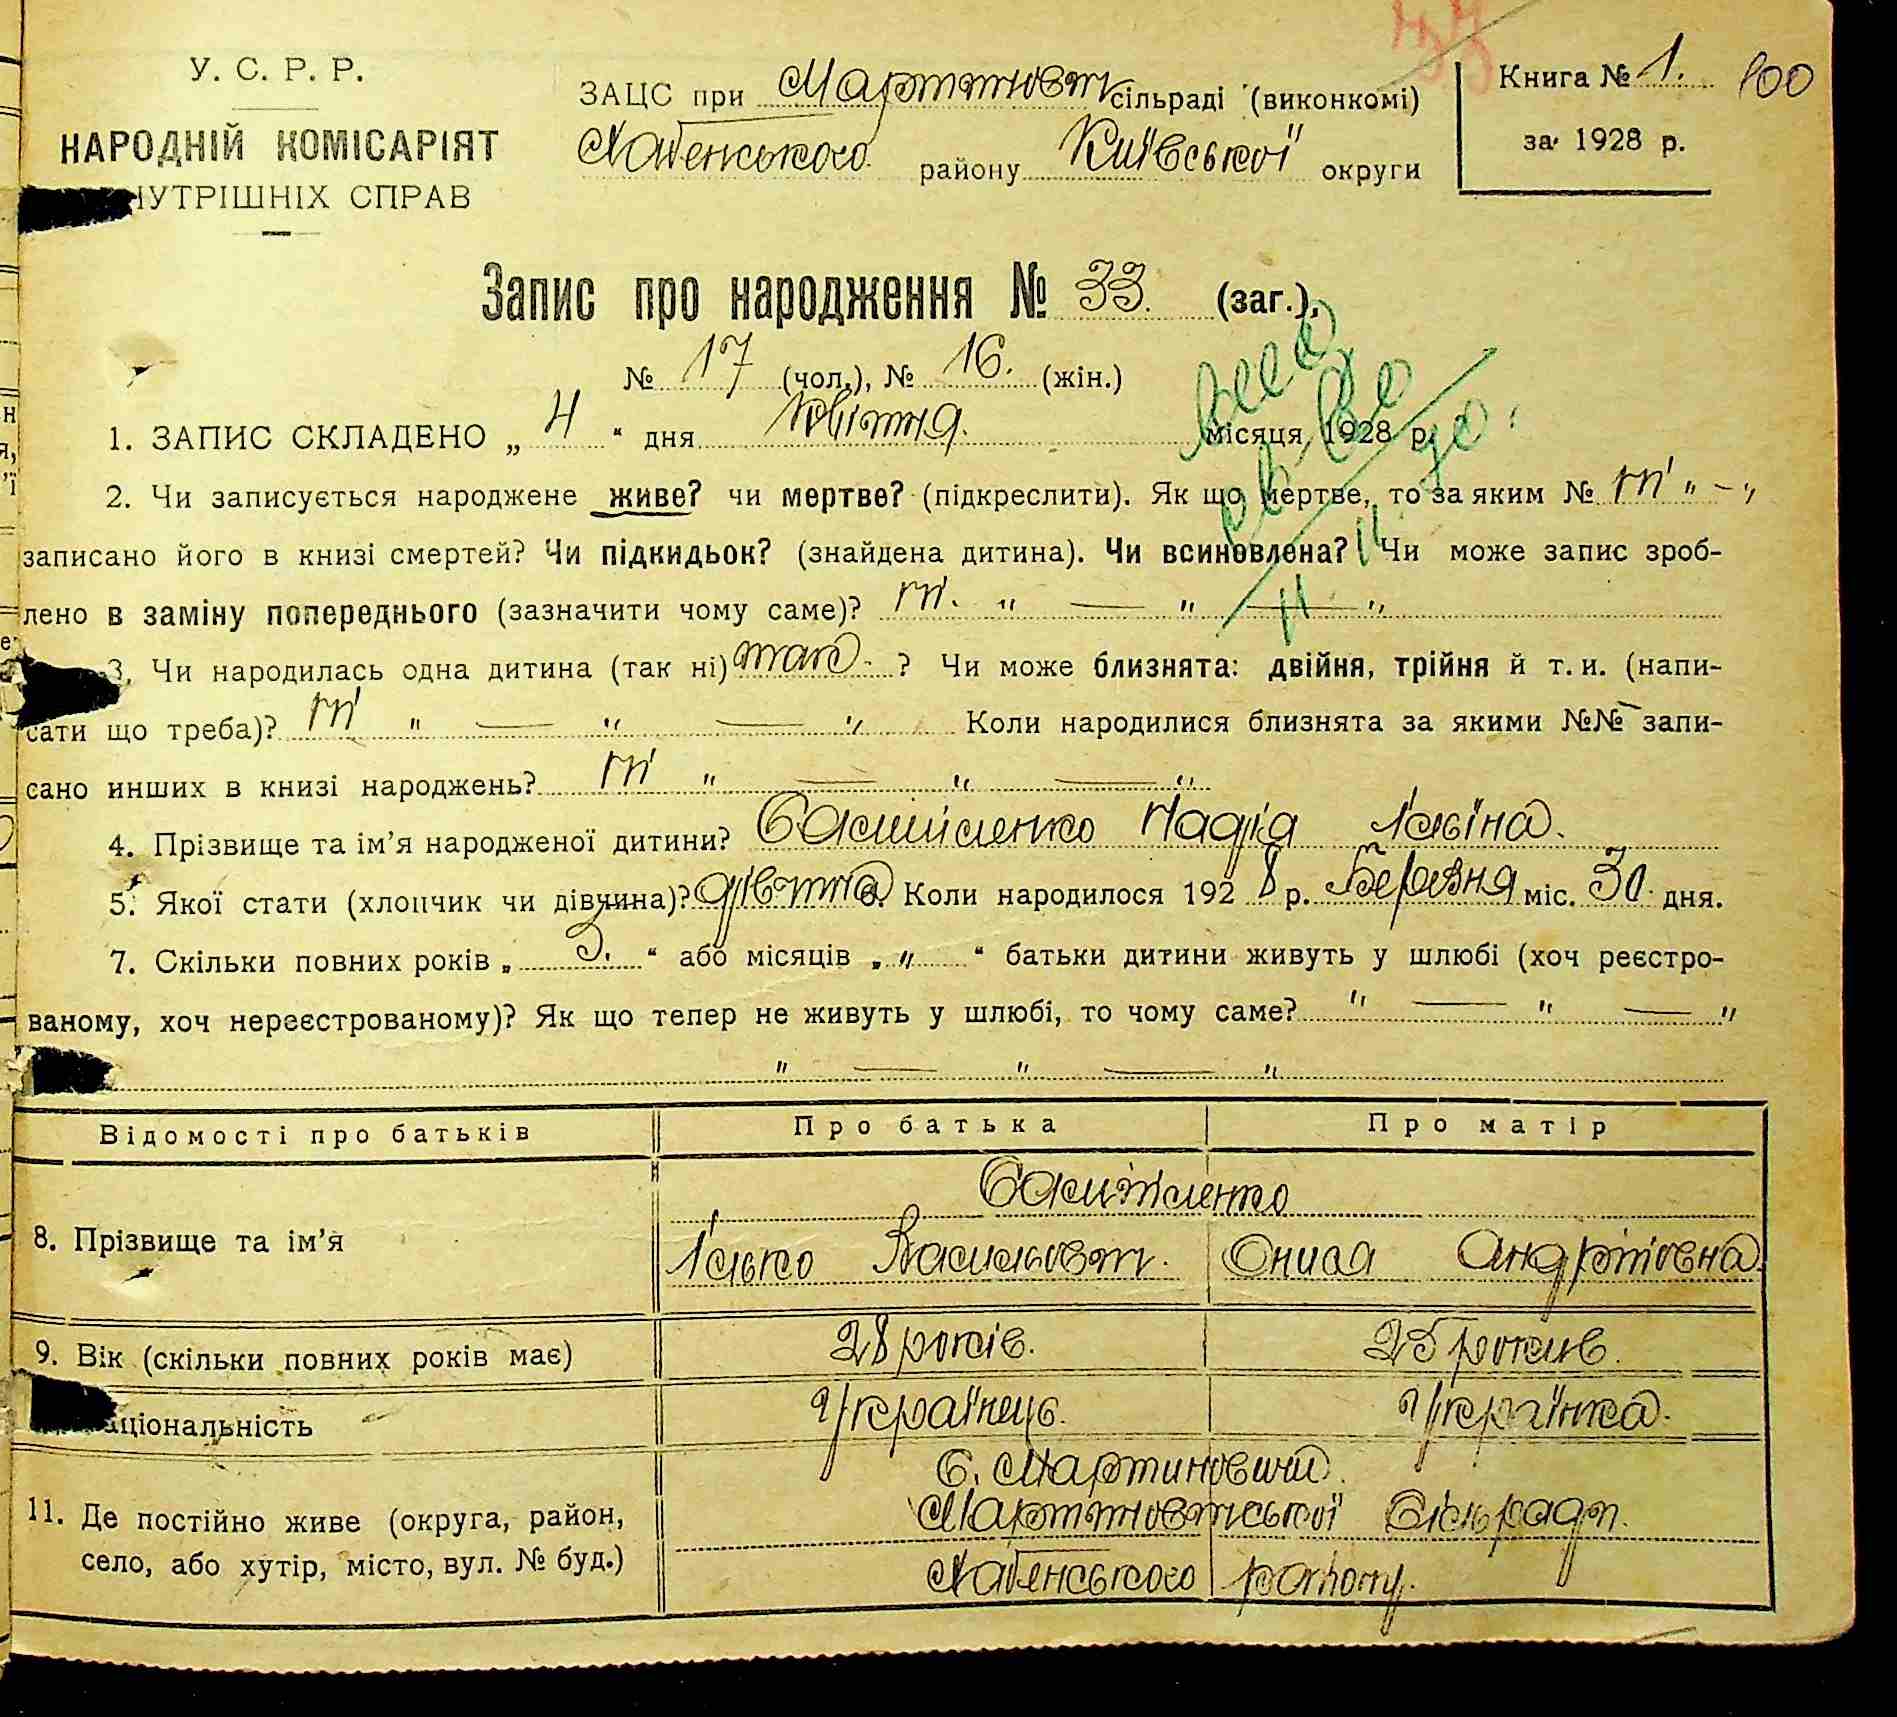 У. С. Р. Р.
НАРОДНІЙ КОМІСАРІЯТ
НУТРІШНІХ СПРАВ
ЗАЦС при Мартинович сільраді (виконкомі)
Хабенського району Київської округи
Книга № 1. 100
за 1928 р.
Запис про народження № 33. (заг.),
№ 17 (чол.), № 16. (жін.)
1. ЗАПИС СКЛАДЕНО „ 4 “ дня квітня місяця 1928 р.
2. Чи записується народжене живе? чи мертве? (підкреслити). Як що мертве, то за яким № ні " – "
записано його в книзі смертей? Чи підкидьок? (знайдена дитина). Чи всиновлена? Чи може запис зроб-
лено в заміну попереднього (зазначити чому саме)? ні. " — " — "
3. Чи народилась одна дитина (так ні) так. ? Чи може близнята: двійня, трійня й т. и. (напи-
сати що треба)? ні " — " — " Коли народилися близнята за якими №№ запи-
сано инших в книзі народжень? ні " — " — "
4. Прізвище та ім’я народженої дитини? Самійленко Надія Ільїна.
5. Якої стати (хлопчик чи дівчина)? дівчина 6. Коли народилося 1928 р. Березня міс. 30 дня.
7. Скільки повних років „ 3. “ або місяців „ " “ батьки дитини живуть у шлюбі (хоч реєстро-
ваному, хоч нереєстрованому)? Як що тепер не живуть у шлюбі, то чому саме? " — " — "
" — " — "
Відомості про батьків Про батька Про матір
Самійленко
8. Прізвище та ім’я Ілько Василович. Онися Андріївна
9. Вік (скільки повних років має) 28 років. 25 років.
аціональність Українець. Українка.
С. Мартиновичі
11. Де постійно живе (округа, район, Мартиновицької Сільради.
село, або хутір, місто, вул. № буд.) Хабенського району.